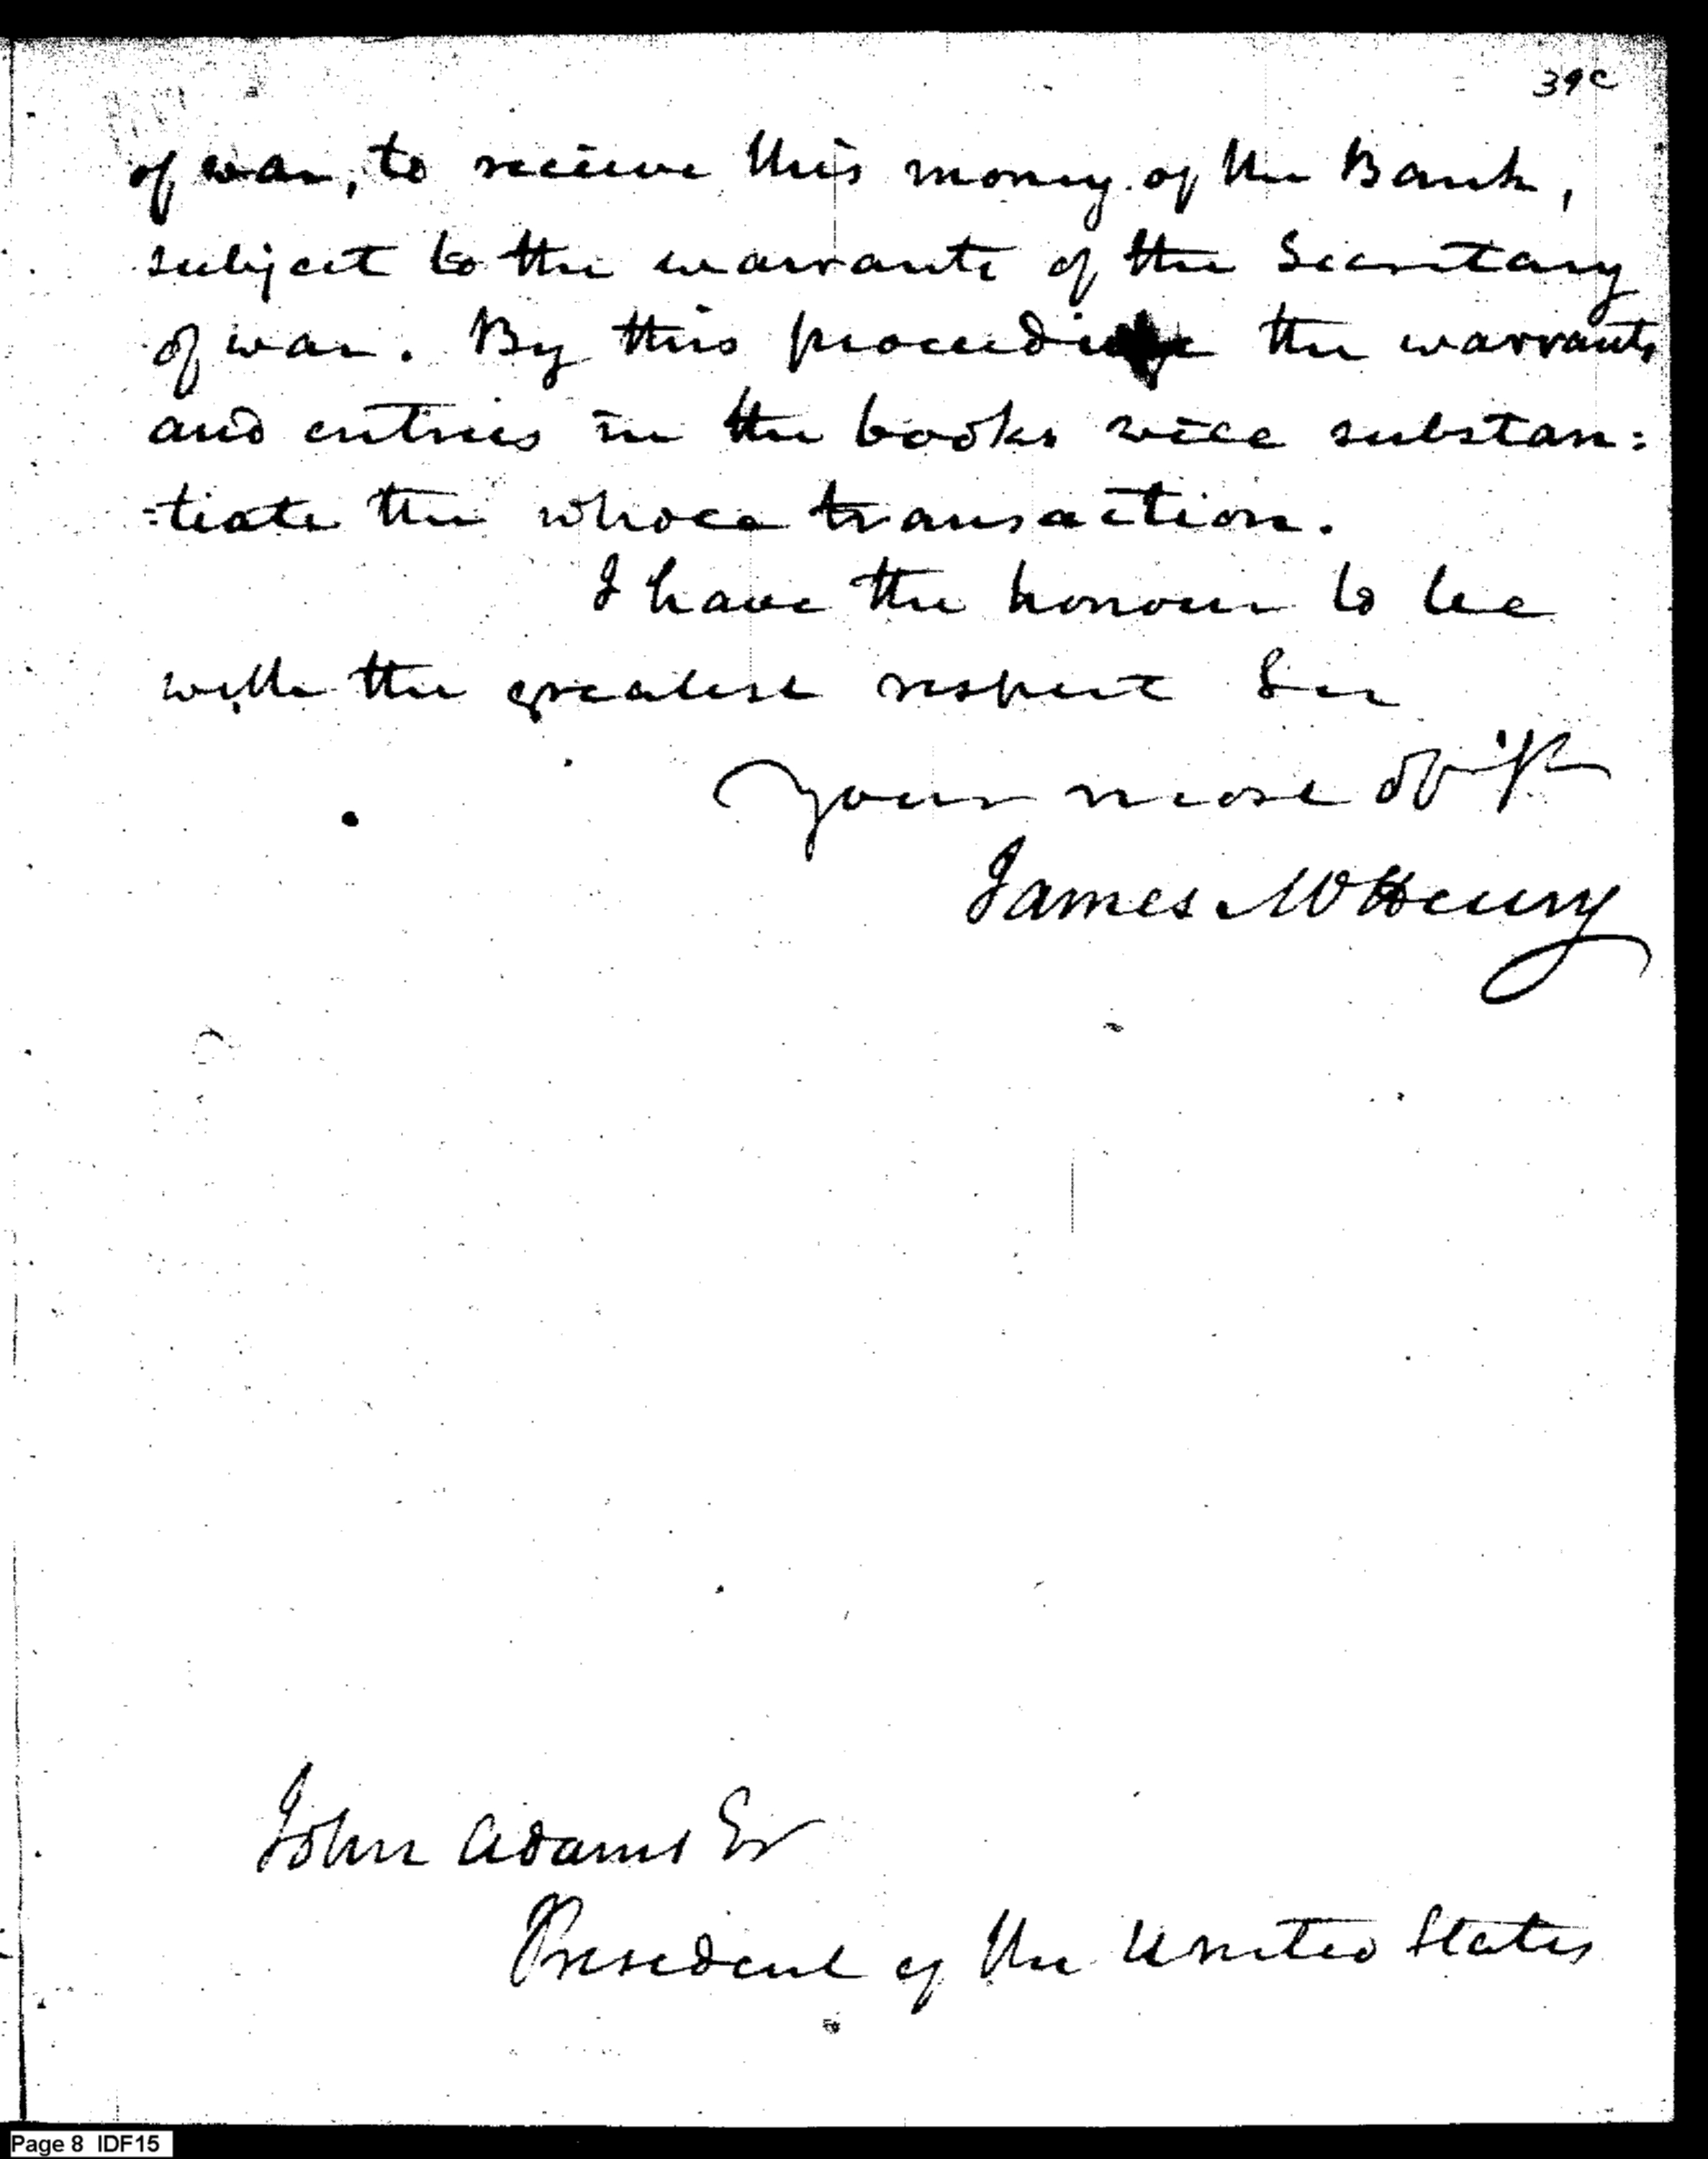 39c
of war, to receive this money of the Bank,
subject to the warrants of the Secretary
of war. By this the warrants
and entries in the books will substan:
:tiate the whole transaction.
I have the honour to be
with the greatest respect Sir
Your most
James McHenry
John Adams Esr
President of the United States
Page 8 IDF15